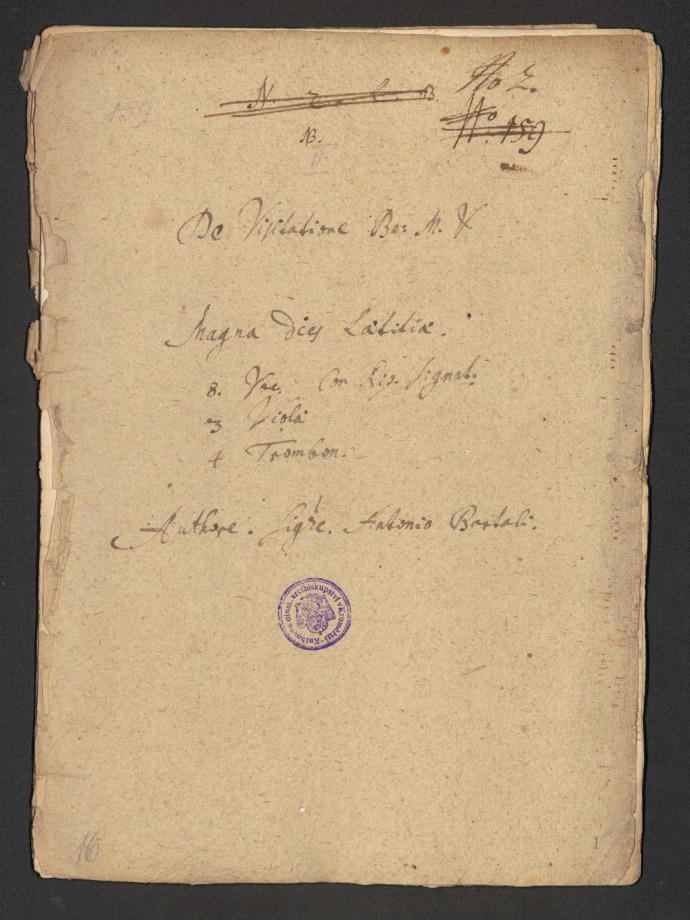 159
No 2.
N. 2. L. B.
No. 159
B.
De Visitatione Be: M. V
Magna dies Lætitiæ.
8. Voc. Con Rip. Signat.
3 Viola
4 Trombon.
Authore. Sigre. Antonio Bertali.
Knihovna olom. arcibiskupství v Kroměříži
16
1